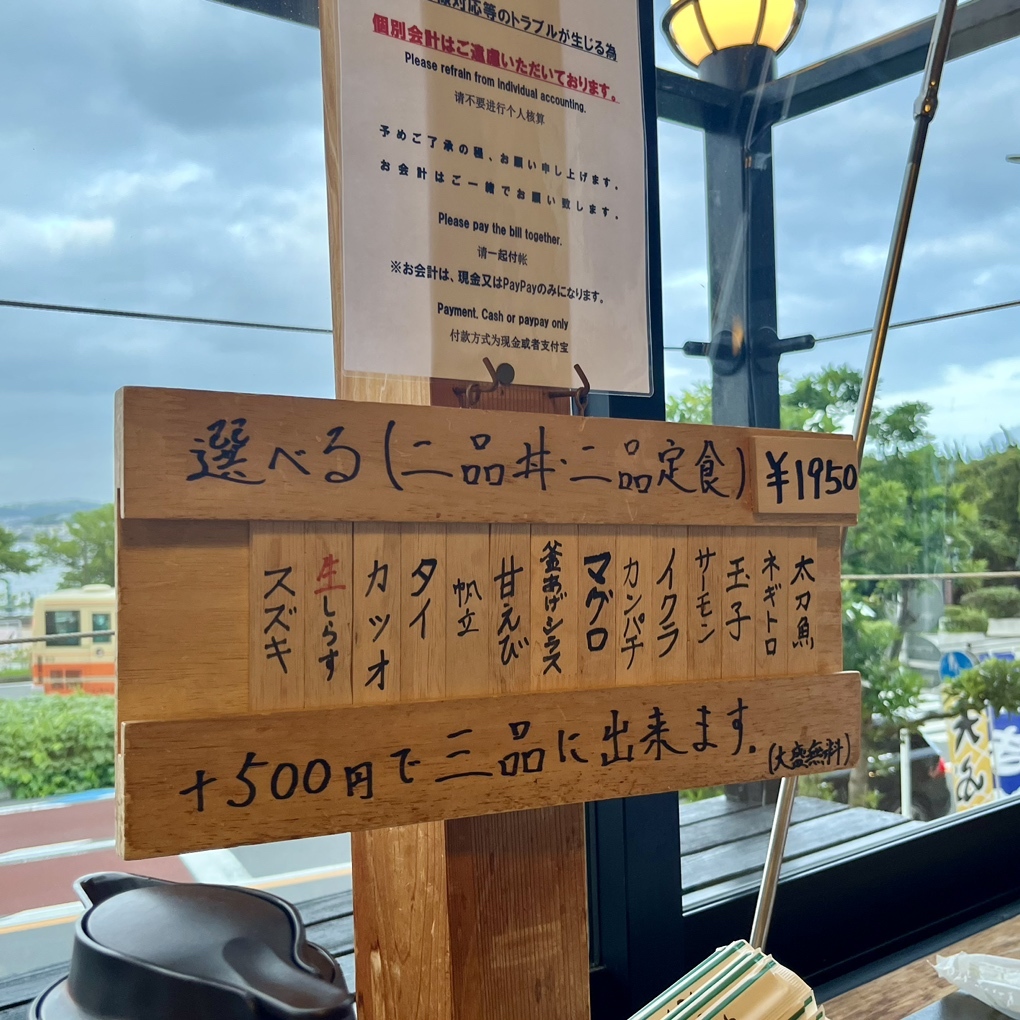 対応等のトラブルが生じる為
個別会計はご遠慮いただいております。
Please refrain from individual accounting.
请不要进行个人核算
予めご了承の程、お願い申し上げます。
お会計はご一緒でお願い致します。
Please pay the bill together.
请一起付帐
※お会計は、現金又はPayPayのみになります。
Payment. Cash or paypay only
付款方式为现金或者支付宝
選べる(二品丼・二品定食) ¥1950
太刀魚
ネギトロ
玉子
サーモン
イクラ
カンパチ
マグロ
釜あげシラス
甘えび
帆立
タイ
カツオ
生しらす
スズキ
+500円で三品に出来ます。(大盛無料)